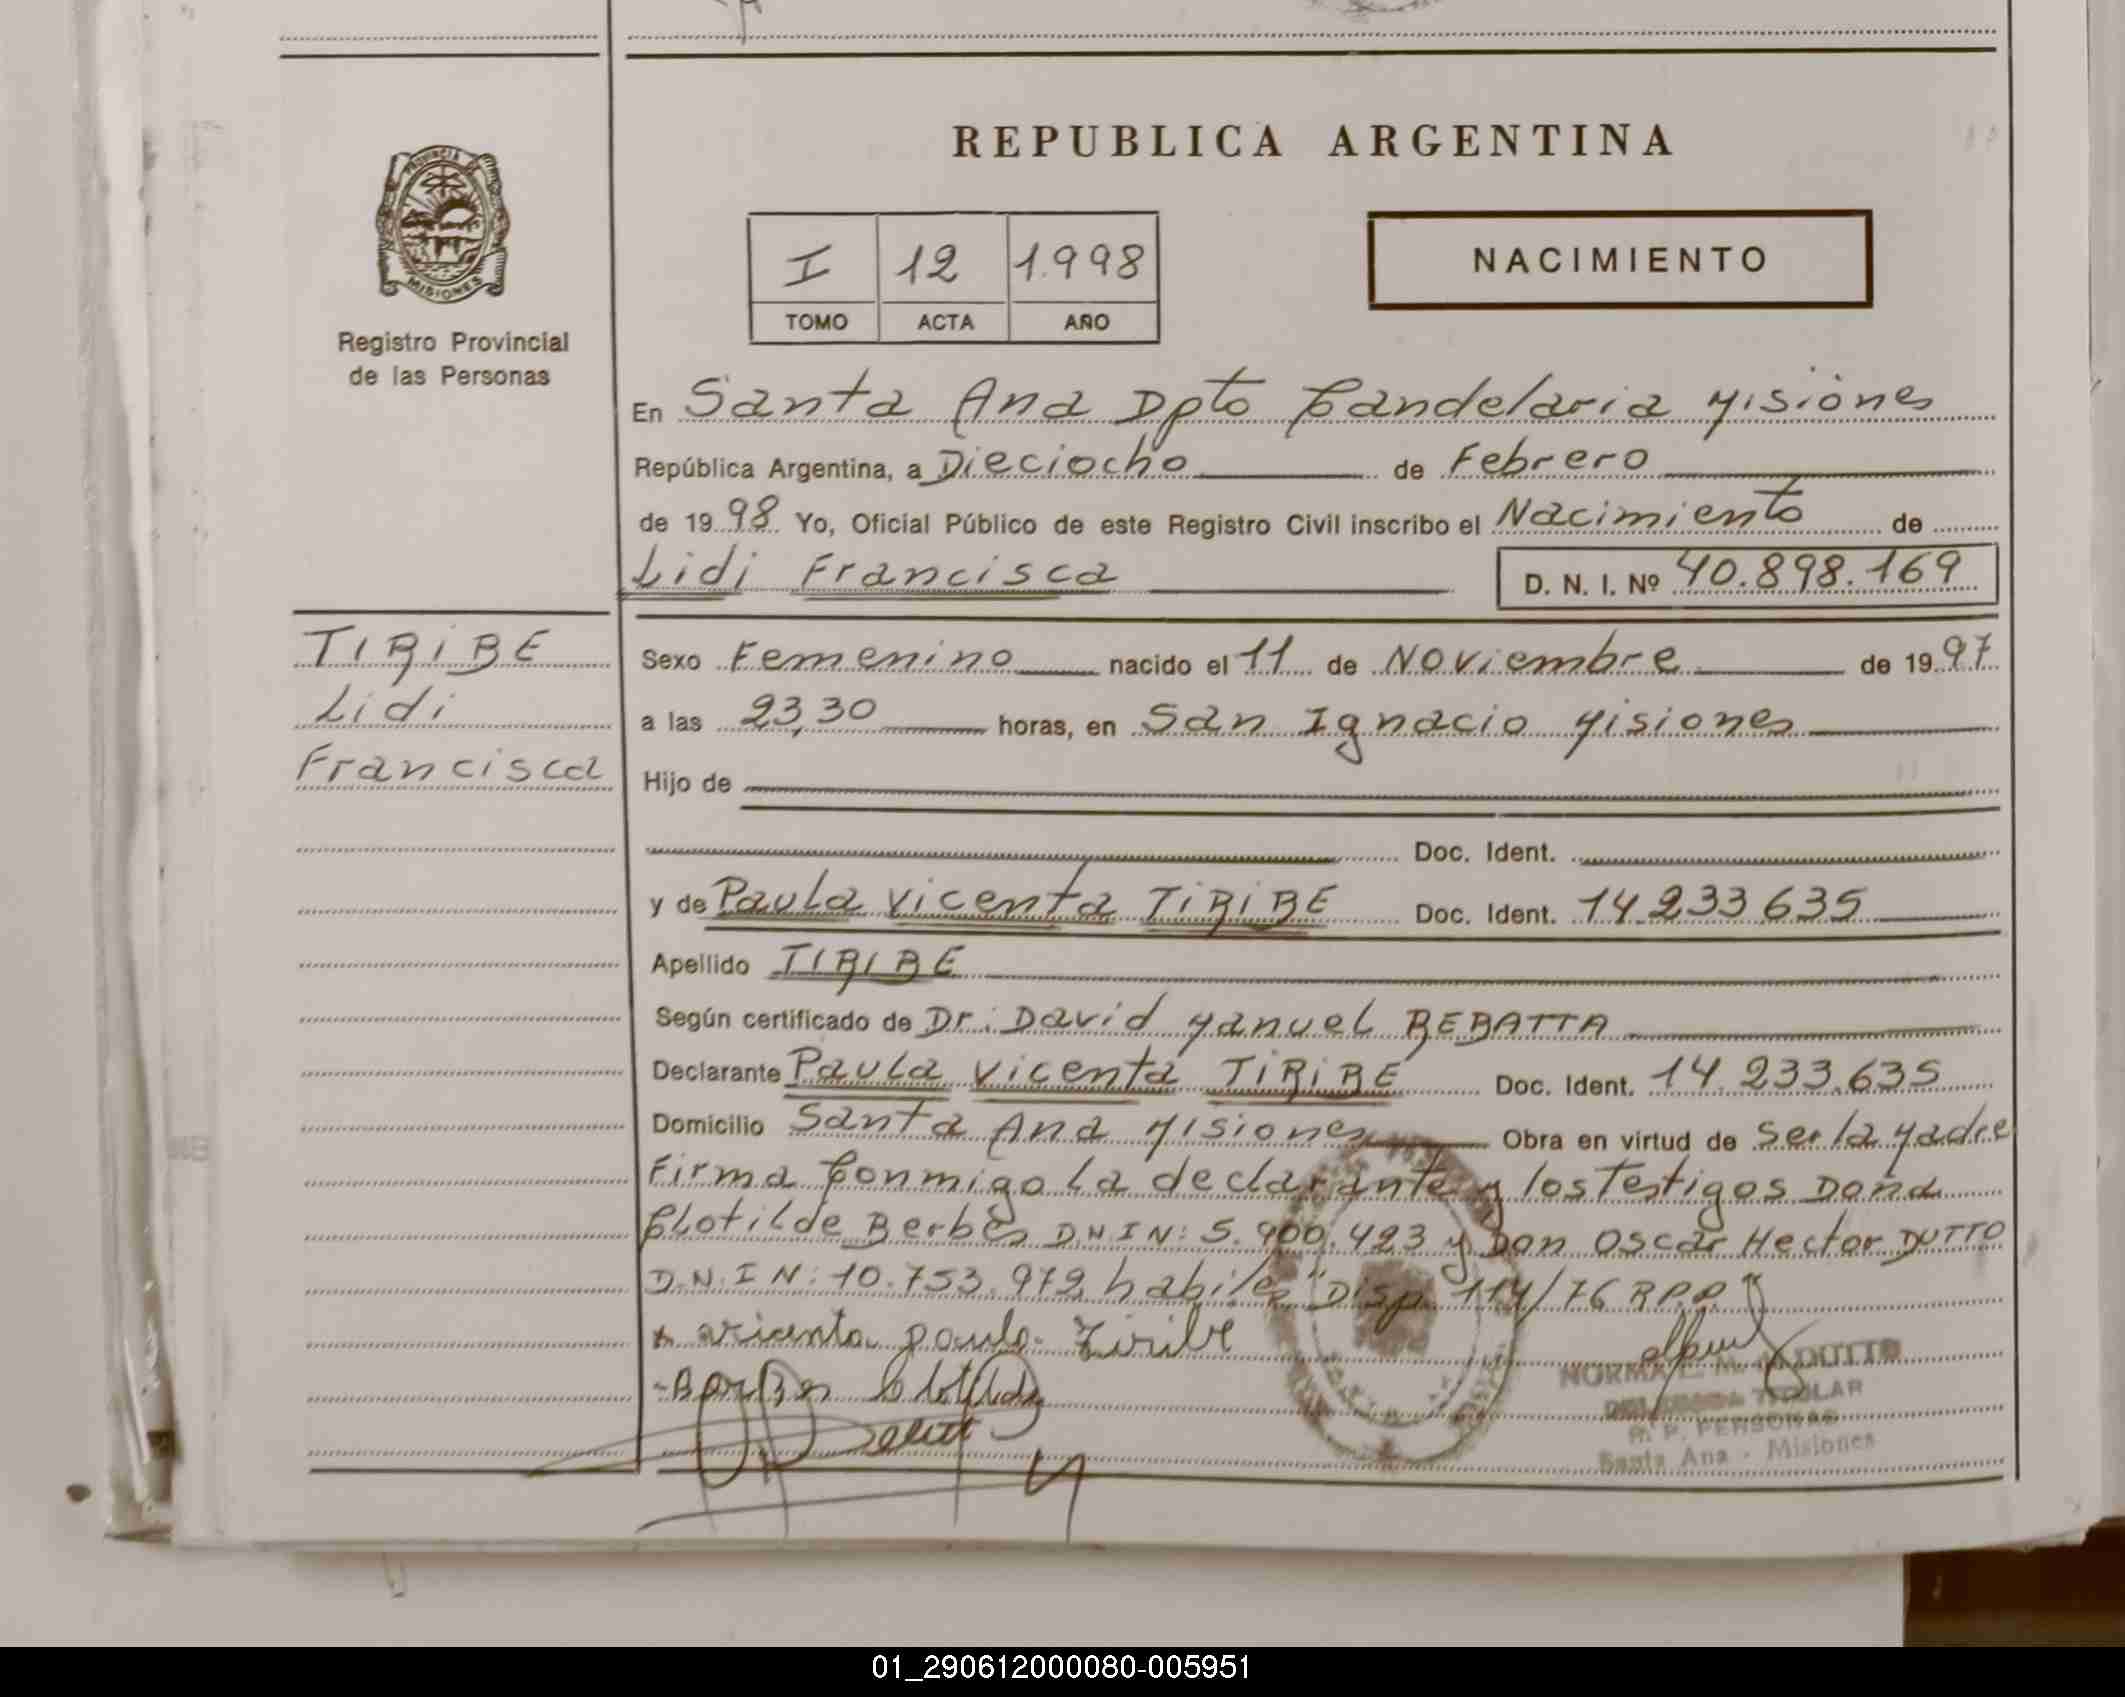 REPUBLICA ARGENTINA
PROVINCIA DE
MISIONES
Registro Provincial
de las Personas
I 12 1.998
TOMO ACTA AÑO
NACIMIENTO
En Santa Ana Dpto Candelaria Misiones
República Argentina, a Dieciocho de Febrero
de 1998 Yo, Oficial Público de este Registro Civil inscribo el Nacimiento de
Lidi Francisca D. N. I. Nº 40.898.169
TIRIBE
Lidi
Francisca
Sexo Femenino nacido el 11 de Noviembre de 1997
a las 23,30 horas, en San Ignacio Misiones
Hijo de
Doc. Ident.
y de Paula Vicenta TIRIBE Doc. Ident. 14.233.635
Apellido TIRIBE
Según certificado de Dr. David Manuel REBATTA
Declarante Paula Vicenta TIRIBE Doc. Ident. 14.233.635
Domicilio Santa Ana Misiones Obra en virtud de ser la Madre
Firma Conmigo la declarante y los Testigos Doña
Clotilde Berbes D.N.I N: 5.900.423 y Don Oscar Hector DUTTO
D.N.I N: 10.753.972 habiles "Disp. 114/76 R.P.P."
x vicenta paula Tiribe
Clotilde
NORMA DUTTO
TITULAR
R. P. PERSONAS
Santa Ana - Misiones
01_290612000080-005951